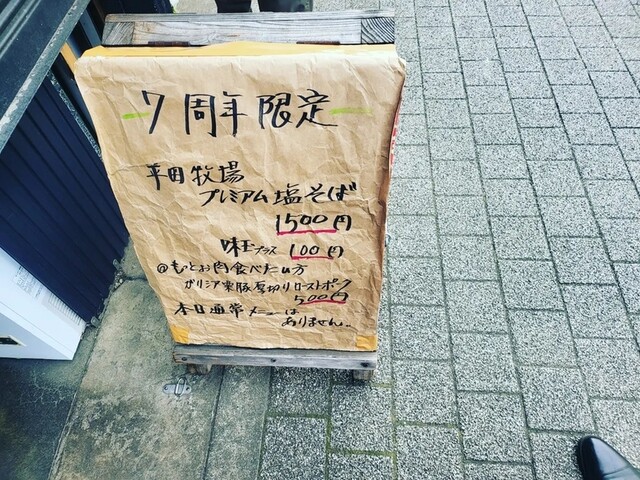 7周年限定
平田牧場
プレミアム塩そば
1500円
味玉プラス 100円
@もっとお肉食べたい方
ガリシア栗豚厚切りローストポーク
500円
本日通常メニューは
ありません。